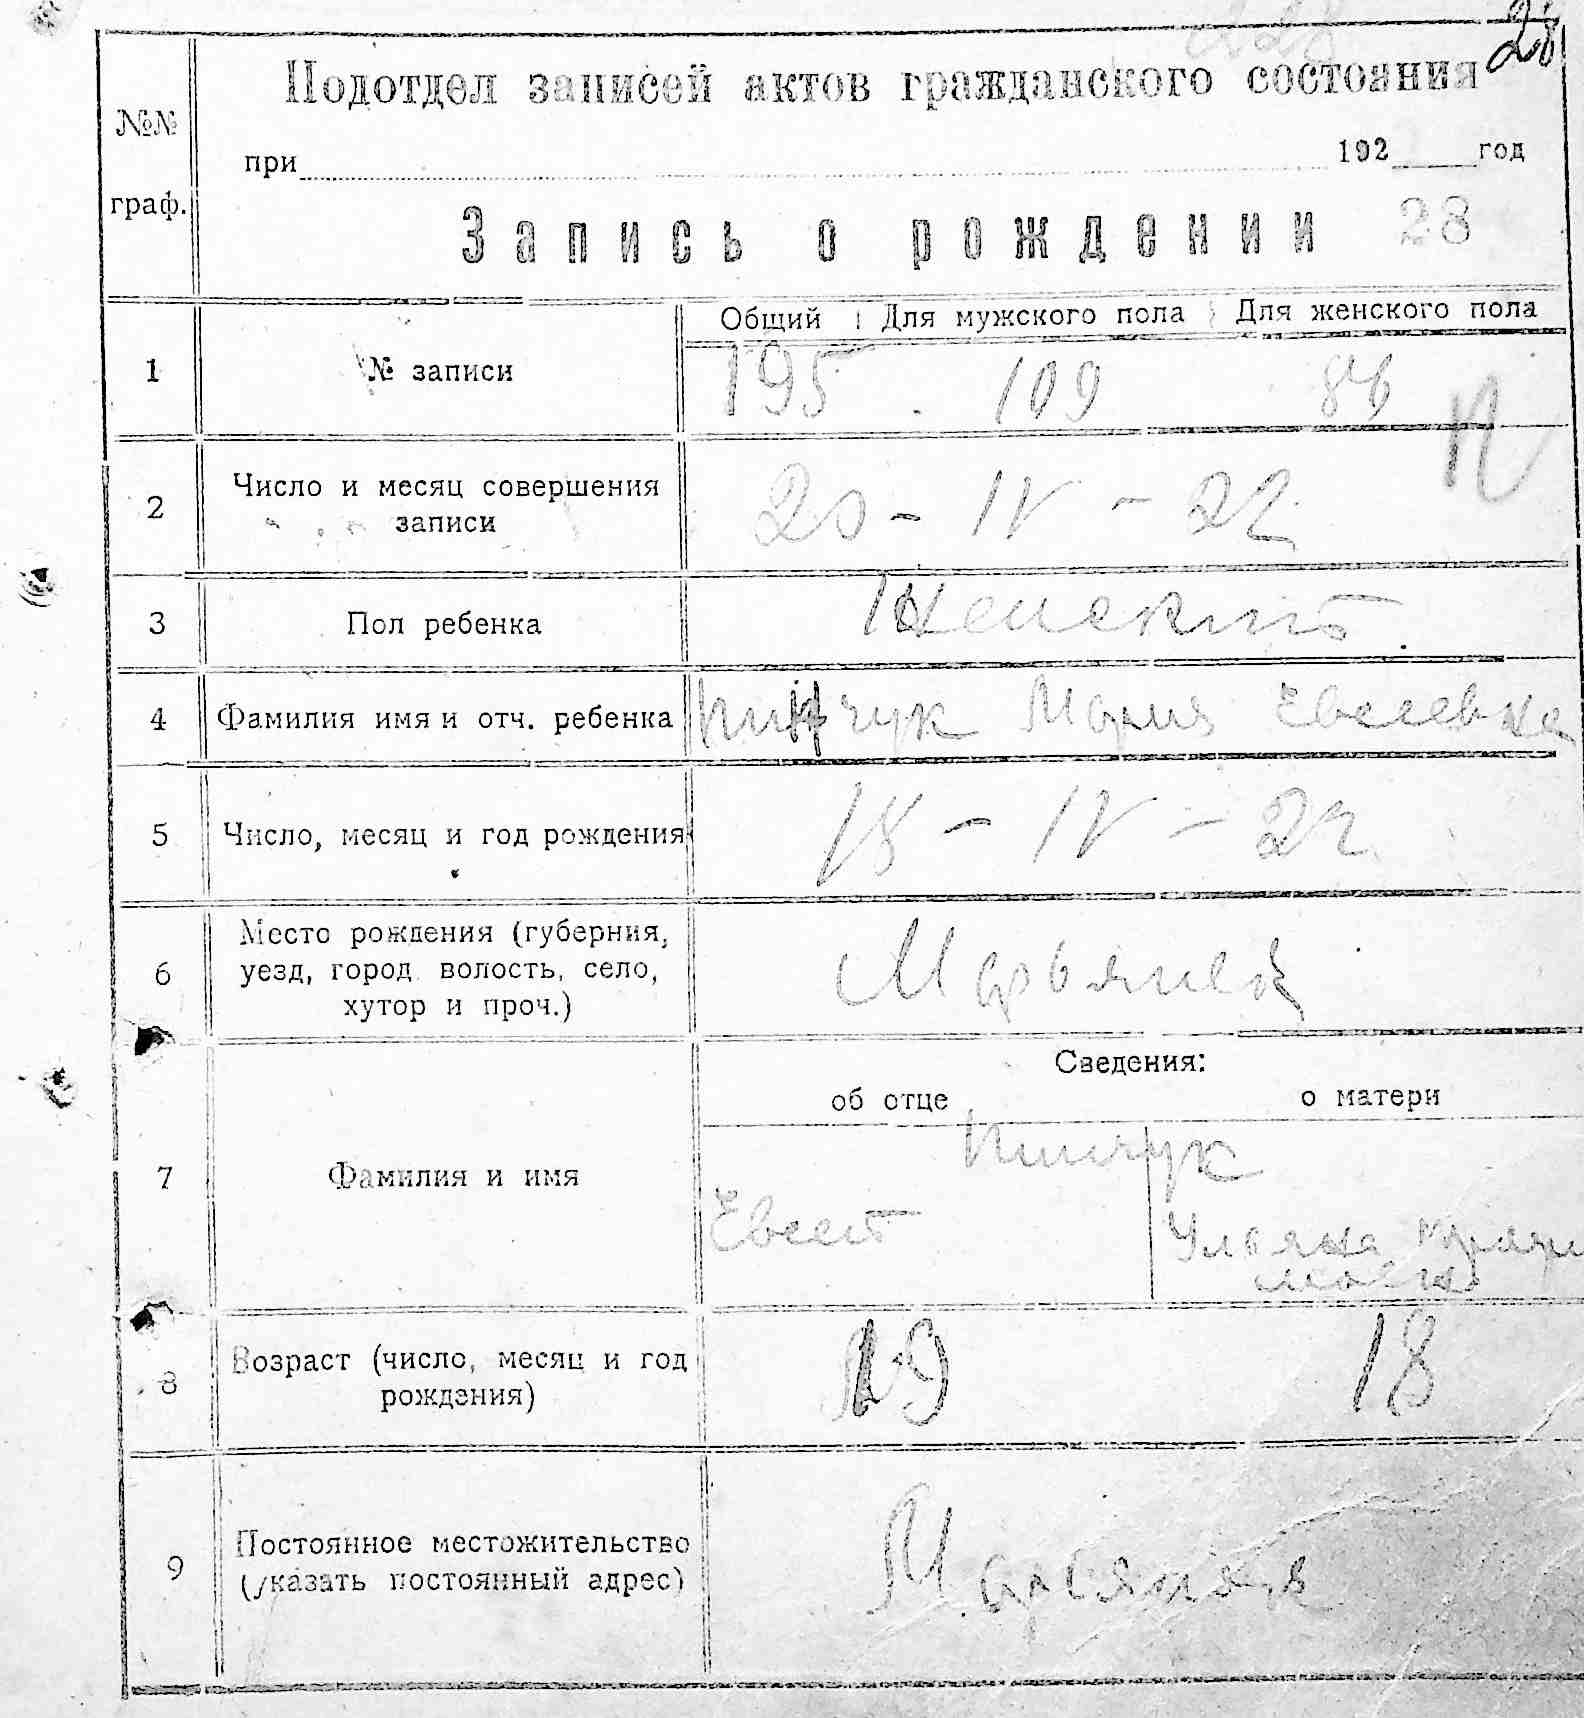 28
Подотдел записей актов гражданского состояния
№№ граф.
при 192 год
Запись о рождении 28
Общий Для мужского пола Для женского пола
1 № записи 195 109 86
2 Число и месяц совершения
записи 20 - IV - 22
3 Пол ребенка Женский
4 Фамилия имя и отч. ребенка Пинчук Мария Евсеевна
5 Число, месяц и год рождения 18 - IV - 22
6 Место рождения (губерния,
уезд, город волость, село,
хутор и проч.)
Сведения:
об отце о матери
7 Фамилия и имя Пинчук
Евсей Ульяна
8 Возраст (число, месяц и год
рождения) 19 18
9 Постоянное местожительство
(указать постоянный адрес)